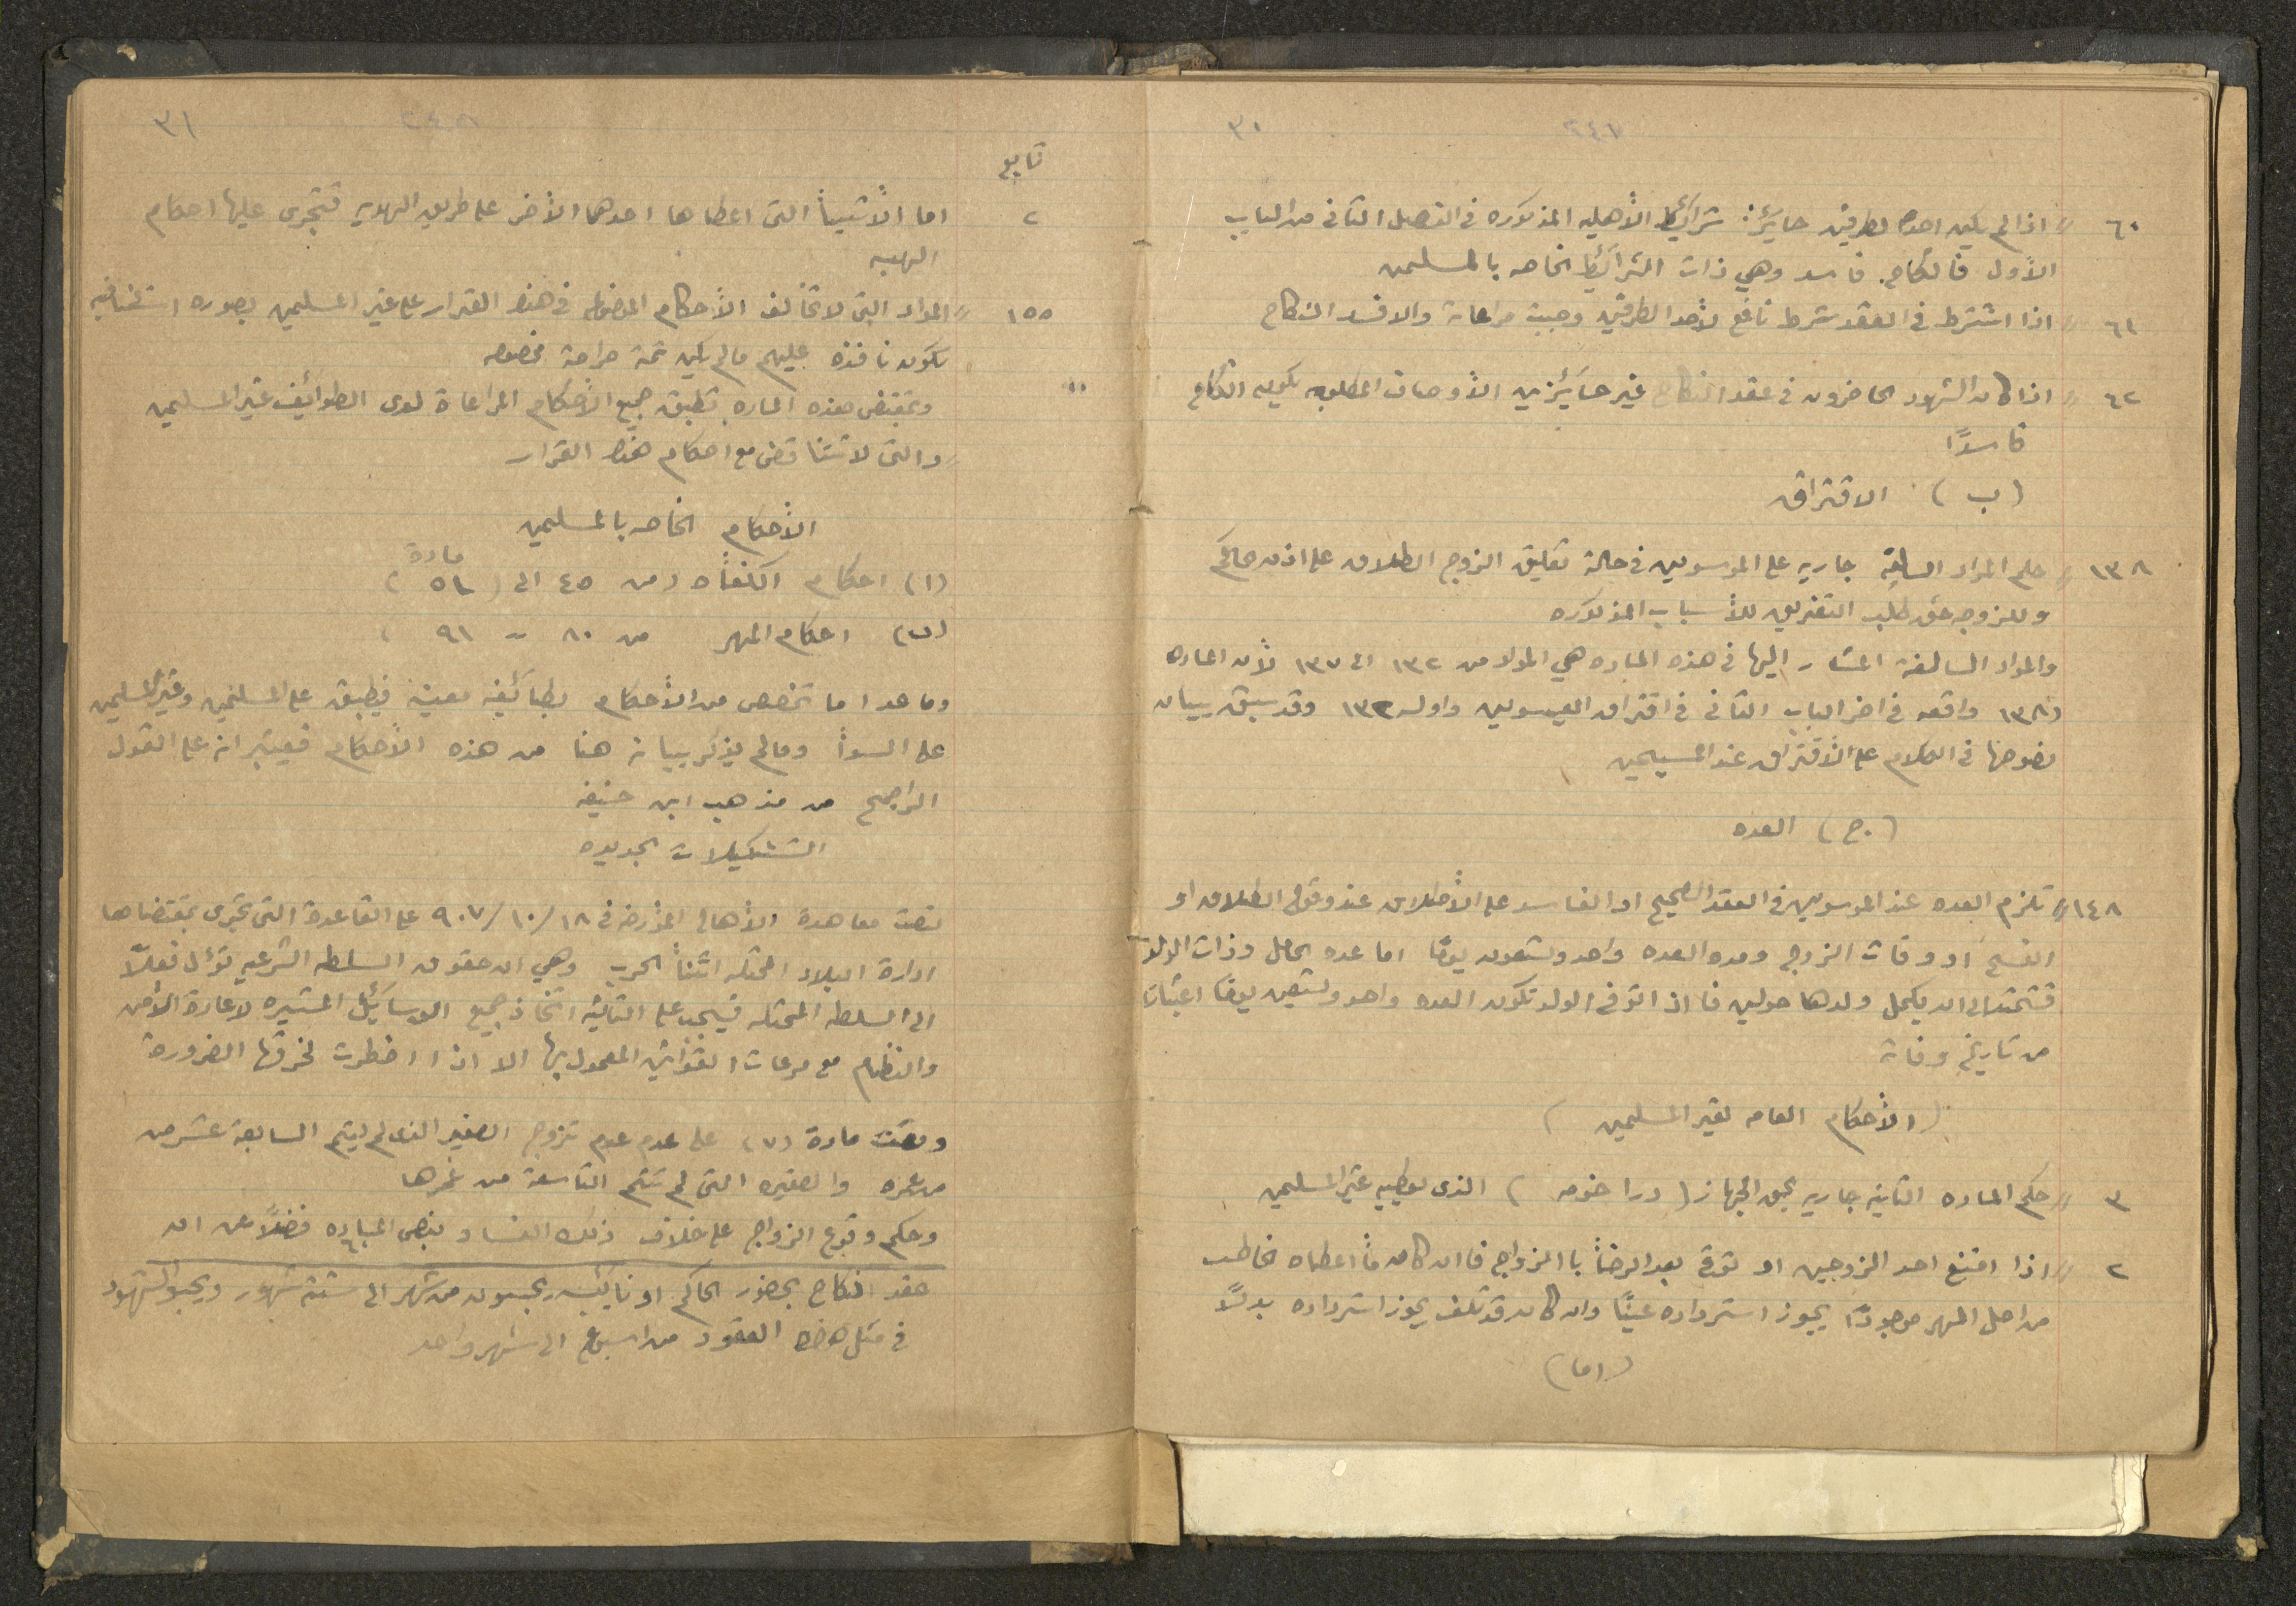 ٢٤٧ ٣٠
٦٠ " اذا لم يكن احد الطرفين حايزً شرائط الأهليه المذكوره في الفصل الثاني من الباب
الأول فالنكاح فاسد وهي ذات الشرائط الخاصه بالمسلمين
٦١ " اذا اشترط في العقد شرط نافع لأحد الطرفين وجبت مراعاته والا فسد النكاح
٦٢ " اذا كان الشهود الحاضرون في عقد النكاح غير حائزين الأوصاف المطلوبه يكون النكاح
فاسدًا
(ب) الافتراق
١٣٨ " حكم المواد السابقة جاريه على الموسويين في حالة تعليق الزوج الطلاق على اذن حاكم
وللزوجه حق طلب التفريق للأسباب المذكوره
والمواد السالفة المشار اليها في هذه الماده هي المواد من ١٣٢ الى ١٣٧ لأن الماده
(١٣٨ واقعه في اخر الباب الثاني في افتراق العيسويين واوله ١٣٢ وقد سبق بيان
نصوصها في الكلام على الأفتراق عند المسيحين
(ج) العده
١٤٨ " تلزم العده عند الموسويين في العقد الصحيح او الفاسد على الأطلاق عند وقوع الطلاق او
الفسخ او وفات الزوج ومده العده واحد وتسعون يومًا اما عده الحامل وذات الولد
فتمتد الى ان يكمل ولدها حولين فاذا اتوفى الولد تكون العده واحد وتسعين يومًا اعتبارًا
من تاريخ وفاته
(الأحكام العامه لغير المسلمين)
٣ " حكم الماده الثانيه جاريه بحق الجهاز (دراخومه) الذي يعطيه غير المسلمين
٢ " اذا امتنع احد الزوجين او توفى بعد الرضأ بالزواج فان كان مأ اعطاه الخاطب
من اصل المهر موجودًا يجوز استرداده عينًا وان كان قد تلف يجوز استرداده بدلًا
(اما)
٢٤٨ ٣١
تابع
٢ اما الأشيأ التى اعطاها احدهما الأخر على طريق الهديه فتجرى عليها احكام
الهبه
١٥٥ " المواد التى لا تخالف الأحكام الموضوعه في هذا القرار على غير المسلمين بصوره استثنائيه
تكون نافذه عليهم مالم يكن ثمة صراحة مخصوصه
" وبمقتضى هذه الماده تطبق جميع الأحكام المراعاة لدى الطوائف غير المسلمين
" والتى لا تتناقض مع احكام هذا القرار
الأحكام الخاصه بالمسلمين
(ا) احكام الكفأه (من ٤٥ الى مادة ٥١)
(ب) احكام المهر من ٨٠ " ٩١)
وما عدا ما تخصص من الأحكام بطائفة معينة فيطبق على المسلمين وغير المسلمين
على السوأ ومالم يذكر بيانه هنا من هذه الأحكام فيعتبر انه على القول
الراجح من مذهب ابى حنيفه
التشكيلات الجديده
نصت معاهدة الأهاي المؤرخه في ١٨/١٠/٩٠٧ على القاعدة التى تجرى بمقتضاها
ادارة البلاد المحتله اثنأ الحرب وهي ان حقوق السلطه الشرعيه تؤل فعلًا
الى السلطه المحتله فيجب على الثانيه اتخاذ جميع الوسائل المتيسره لاعادة الأمن
والنظام مع مرعات القوانين المعمول بها الا اذا اضطرت لخرقها الضرورة
ونصت مادة (٧) على عدم عدم تزوج الصغير الذي لم يتم السابعة عشر من
من عمره والصغيره التى لم تتم التاسعة من عمرها
وحكم وقوع الزواج على خلاف ذلك الفساد بنص الماده ٦ فضلًا عن ان
عقد النكاح بحضور الحاكم او نائبه يحبسون من شهر الى ستة شهور ويحبس الشهود
في مثل هذه العقود من اسبوع الى شهر واحد